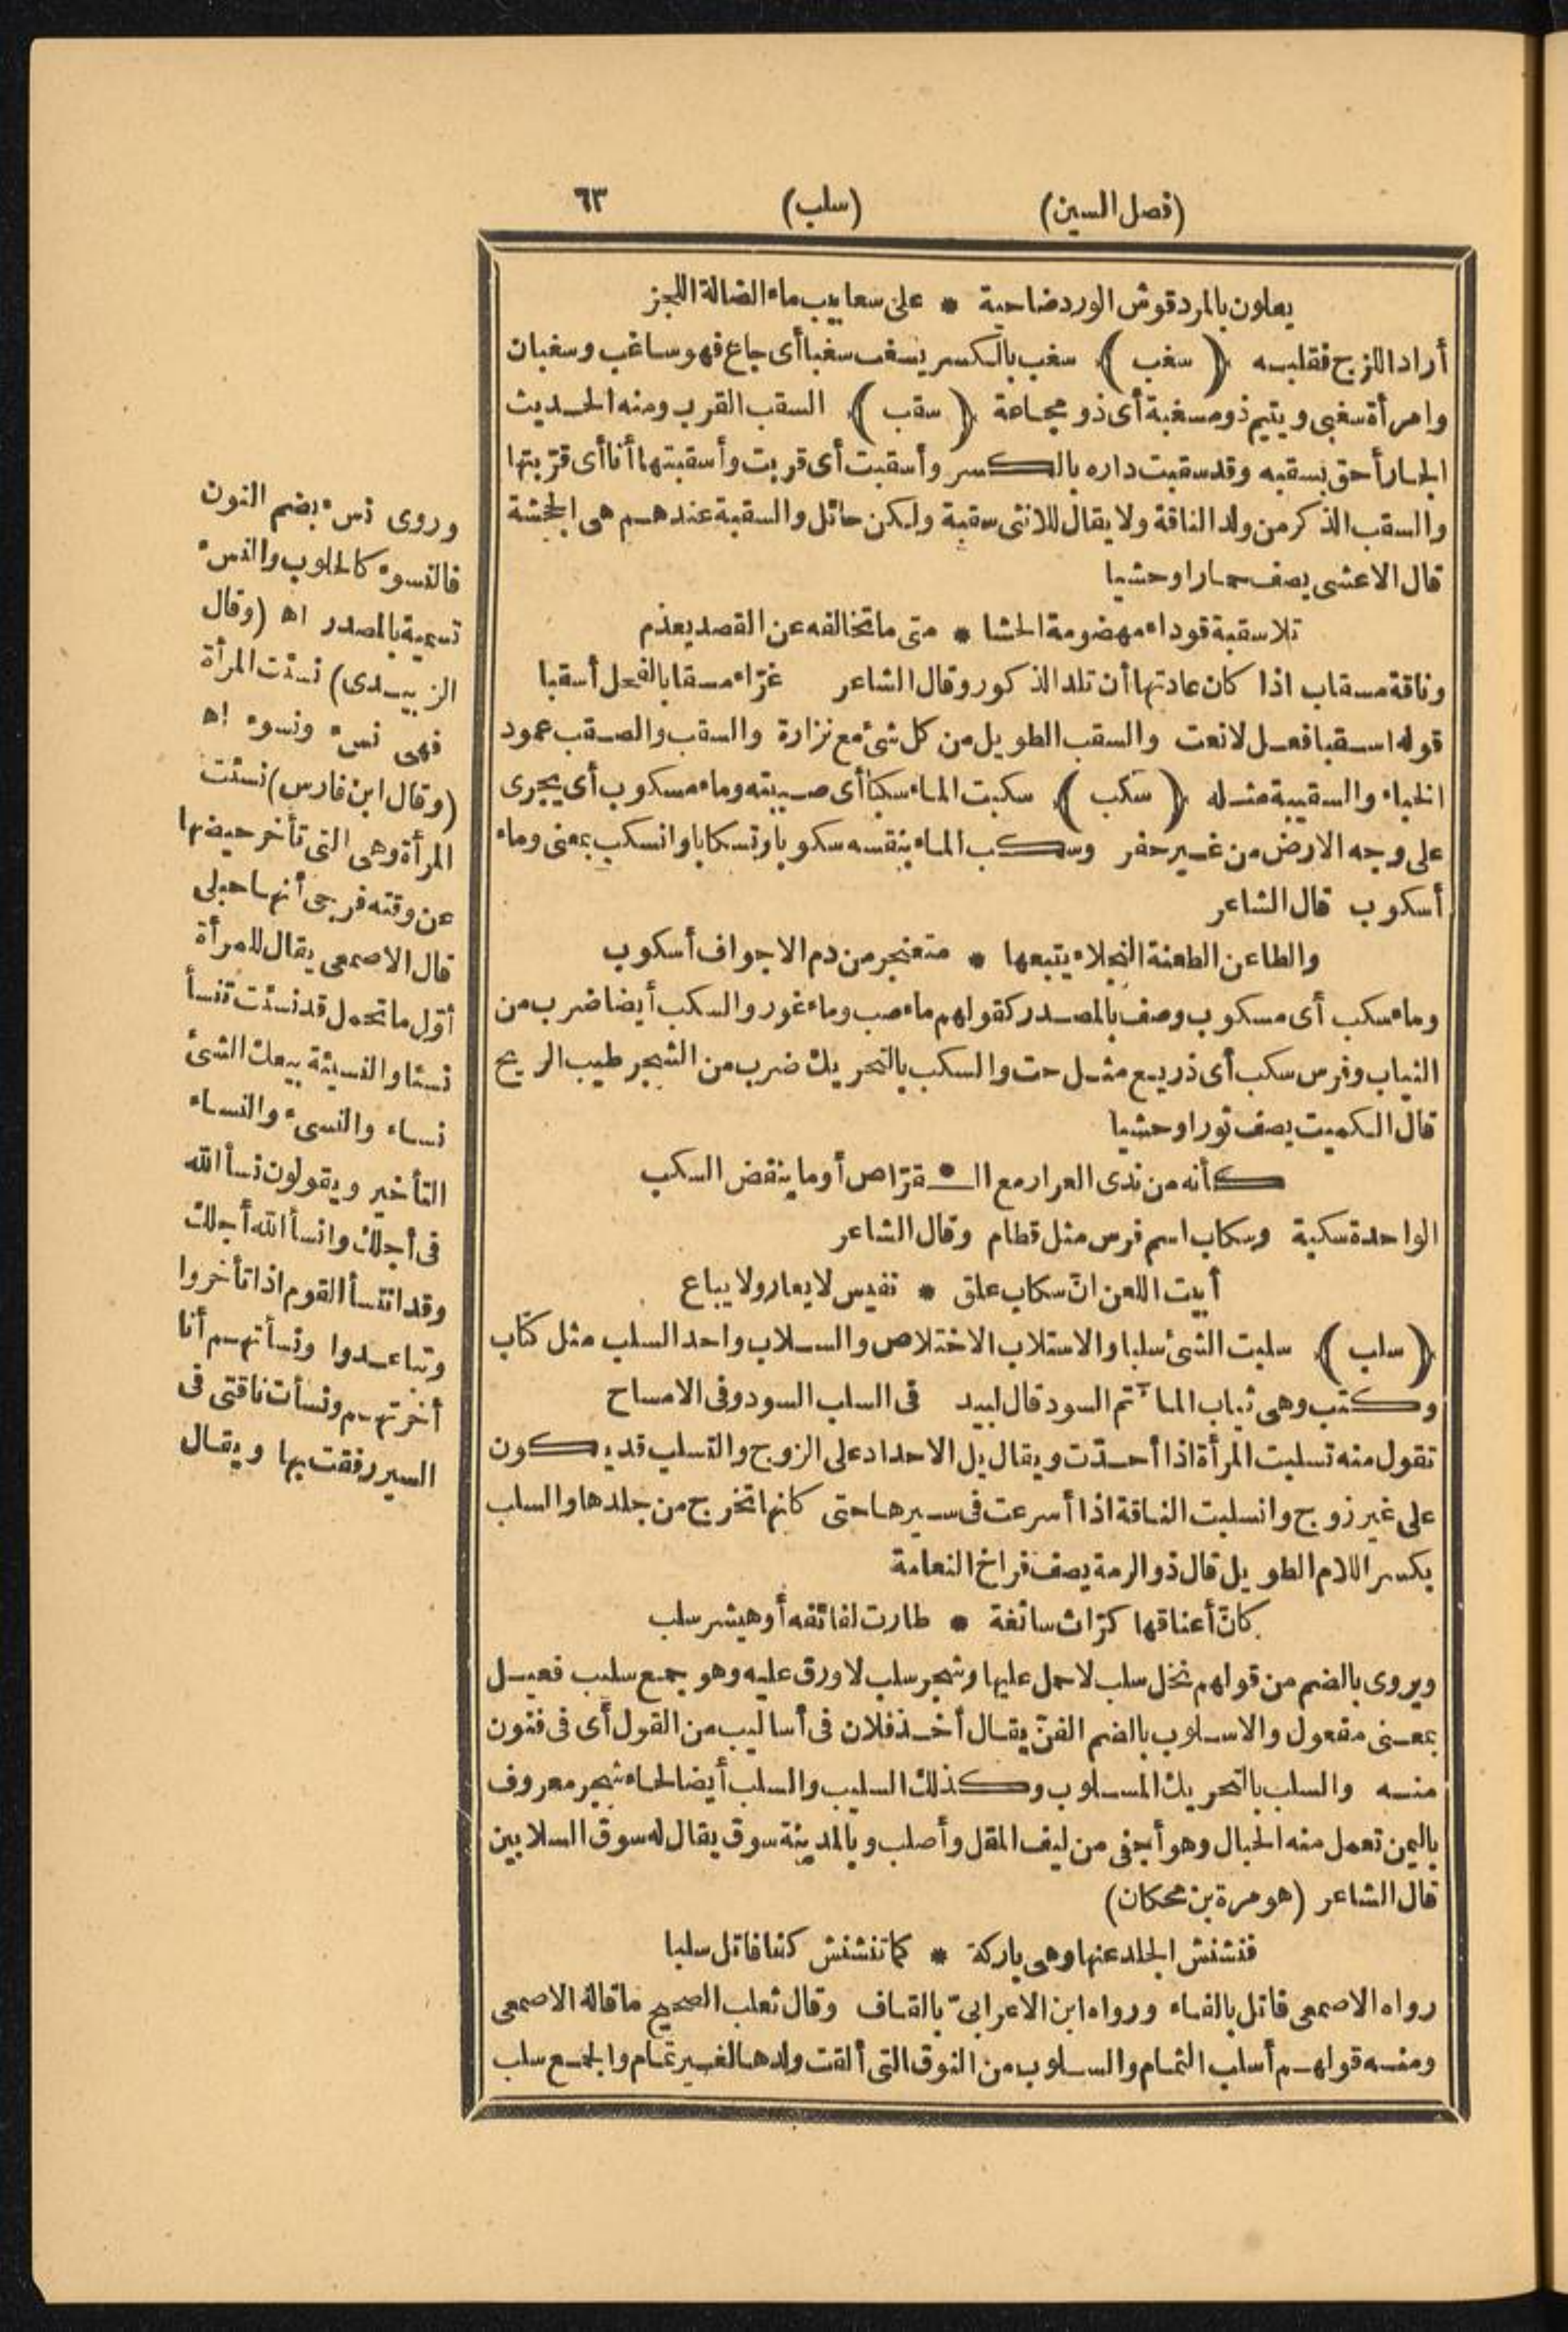 (فصل السين) (سلب) ٦٣
يعلون بالمردقوش الورد ضاحية * على سعابيب ماء الضالة اللجز
أراد اللزج فقلبه (سغب) سغب بالكسر يسغب سغبا أى جاع فهو ساغب وسغبان
وامرأة سغبى ويتيم ذو مسغبة أى ذو مجاعة (سقب) السقب القرب ومنه الحديث
الجار أحق بسقبه وقد سقبت داره بالكسر وأسقبت أى قربت وأسقبتها أنا أى قرّبتها
والسقب الذكر من ولد الناقة ولا يقال للانثى سقبة ولكن حائل والسقبة عندهم هى الجحشة
قال الاعشى يصف حمارا وحشيا
تلا سقبة قوداء مهضومة الحشا * متى ما تخالفه عن القصد يعذم
وناقة مسقاب اذا كان عادتها أن تلد الذكور وقال الشاعر غرّاء مسقابا لفحل أسقبا
قوله اسقبا فعل لا نعت والسقب الطويل من كل شئ مع نزارة والسقب والصقب عمود
الخباء والسقيبة مثله (سكب) سكبت الماء سكبا أى صببته وماء مسكوب أى يجرى
على وجه الارض من غير حفر وسكب الماء بنفسه سكوبا وتسكابا وانسكب بمعنى وماء
أسكوب قال الشاعر
والطاعن الطعنة النجلاء يتبعها * مثعنجر من دم الاجواف أسكوب
وماء سكب أى مسكوب وصف بالمصدر كقولهم ماء صب وماء غور والسكب أيضا ضرب من
الثياب وفرس سكب أى ذريع مثل حت والسكب بالتحريك ضرب من الشجر طيب الريح
قال الكميت يصف ثورا وحشيا
كأنه من ندى العرار مع الـ * قرّاص أو ما ينفض السكب
الواحدة سكبة وسكاب اسم فرس مثل قطام وقال الشاعر
أبيت اللعن انّ سكاب علق * نفيس لا يعار ولا يباع
(سلب) سلبت الشئ سلبا والاستلاب الاختلاص والسلاب واحد السلب مثل كتاب
وكتب وهى ثياب المآتم السود قال لبيد فى السلب السود وفى الامساح
تقول منه تسلبت المرأة اذا أحدّت ويقال بل الاحداد على الزوج والتسلب قد يكون
على غير زوج وانسلبت الناقة اذا أسرعت فى سيرها حتى كانها تخرج من جلدها والسلب
بكسر اللام الطويل قال ذو الرمة يصف فراخ النعامة
كانّ أعناقها كرّاث سائغة * طارت لفائفه أو هيشر سلب
ويروى بالضم من قولهم نخل سلب لا حمل عليها وشجر سلب لا ورق عليه وهو جمع سليب فعيل
بمعنى مفعول والاسلوب بالضم الفنّ يقال أخذ فلان فى أساليب من القول أى فى فنون
منه والسلب بالتحريك المسلوب وكذلك السليب والسلب أيضا لحاء شجر معروف
باليمن تعمل منه الحبال وهو أجفى من ليف المقل وأصلب وبالمدينة سوق يقال له سوق السلابين
قال الشاعر (هو مرة بن محكان)
فنشنش الجلد عنها وهى باركة * كما تنشنش كفا فاتل سلبا
رواه الاصمعى فاتل بالفاء ورواه ابن الاعرابىّ بالقاف وقال ثعلب الصحيح ما قاله الاصمعى
ومنه قولهم أسلب الثمام والسلوب من النوق التى ألقت ولدها لغير تمام والجمع سلب
وروى نسء بضم النون
فالنسوء كالحلوب والنسء
تسمية بالمصدر اه (وقال
الزبيدى) نسئت المرأة
فهى نسء ونسوء اه
(وقال ابن فارس) نسئت
المرأة وهى التى تأخر حيضها
عن وقته فرجى أنها حبلى
قال الاصمعى يقال للمرأة
أوّل ما تحمل قد نسئت تنسأ
نسئا والنسيئة بيعك الشئ
نساء والنسىء والنساء
التأخير ويقولون نسأ الله
فى أجلك وانسأ الله أجلك
وقد انتسأ القوم اذا تأخروا
وتباعدوا ونسأتهم أنا
أخرتهم ونسأت ناقتى فى
السير رفقت بها ويقال